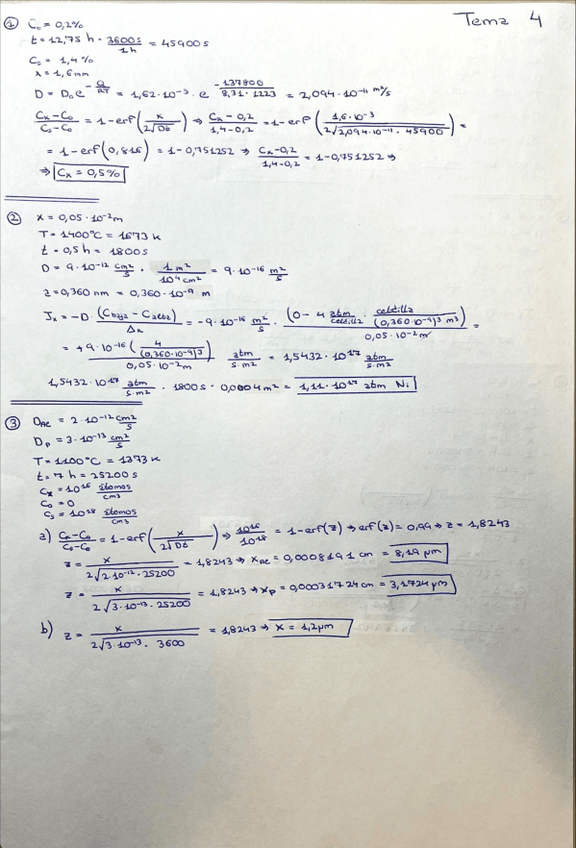 Tema 4
① C₀ = 0,2%
t = 12,75 h · 3600 s / 1 h = 45900 s
Cₛ = 1,4 %
x = 1,6 mm
D = D₀ e^(-Q/RT) = 1,62·10⁻³ · e^(-137800 / 8,31·1223) = 2,094·10⁻¹¹ m²/s
(Cₓ-C₀)/(Cₛ-C₀) = 1-erf(x / 2√Dt) ⇒ (Cₓ-0,2)/(1,4-0,2) = 1-erf(1,6·10⁻³ / 2√2,094·10⁻¹¹ · 45900) =
= 1-erf(0,816) = 1-0,751252 ⇒ (Cₓ-0,2)/(1,4-0,2) = 1-0,751252 ⇒
⇒ Cₓ = 0,5%
② x = 0,05·10⁻²m
T = 1400°C = 1673 K
t = 0,5 h = 1800 s
D = 9·10⁻¹² cm²/s · 1 m² / 10⁴ cm² = 9·10⁻¹⁶ m²/s
a = 0,360 nm = 0,360·10⁻⁹ m
Jₓ = -D · (C baja - C alta) / Δx = -9·10⁻¹⁶ m²/s · (0 - 4 atm/celdilla · celdilla/(0,360·10⁻⁹)³ m³) / 0,05·10⁻²m =
= +9·10⁻¹⁶ (4/(0,360·10⁻⁹)³) / 0,05·10⁻²m atm/s·m² = 1,5432·10¹⁷ atm/s·m²
1,5432·10¹⁷ atm/s·m² · 1800 s · 0,0004 m² = 1,11·10¹⁷ atm Ni
③ D_Al = 2·10⁻¹² cm²/s
D_P = 3·10⁻¹³ cm²/s
T = 1100°C = 1373 K
t = 7 h = 25200 s
Cₓ = 10¹⁶ átomos/cm³
C₀ = 0
Cₛ = 10¹⁸ átomos/cm³
a) (Cₓ-C₀)/(Cₛ-C₀) = 1-erf(x / 2√Dt) ⇒ 10¹⁶/10¹⁸ = 1-erf(z) ⇒ erf(z) = 0,99 ⇒ z = 1,8243
z = x / 2√2·10⁻¹²·25200 = 1,8243 ⇒ x_Al = 0,000819 1 cm = 8,19 μm
z = x / 2√3·10⁻¹³·25200 = 1,8243 ⇒ x_P = 0,00031724 cm = 3,1724 μm
b) z = x / 2√3·10⁻¹³· 3600 = 1,8243 ⇒ x = 1,2 μm